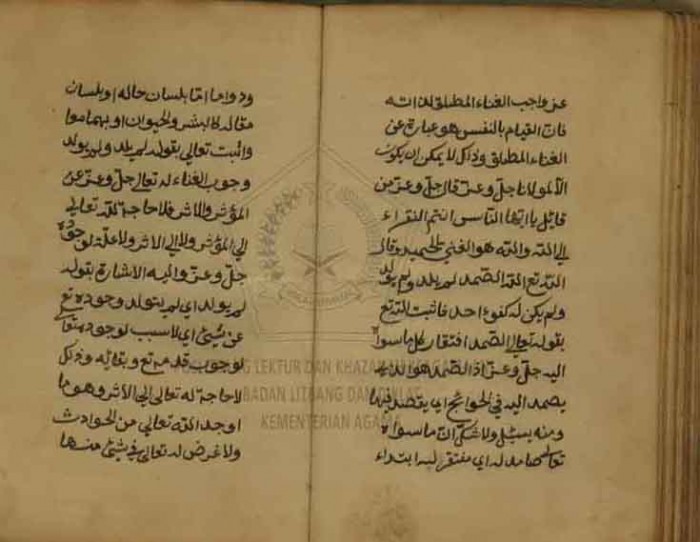 عن واجب الغناء المطلق لذاته
فان القيام بالنفس هو عبارة عن
الغناء المطلق وذلك لا يمكن ان يكون
الا لمولانا جل وعز قال جل وعز من
قايل يا ايها الناس انتم الفقراء
الى الله والله هو الغني الحميد وقال
الله تع الله الصمد لم يلد ولم يولد
ولم يكن له كفوء احد فاثبت الله تع
بقوله تعالى الصمد افتقار كل ما سواه
اليه جل وعز اذ الصمد هو الذي
يصمد اليه في الحوائج اي يقصد فيها
ومنه يسئل ولا شك ان ما سواه
تعالى صامد له اي مفتقر اليه ابتداء
ودواما اما بلسان حاله او بلسان
مقاله كالبشر والحيوان او بهما معا
واثبت تعالى بقوله لم يلد ولم يولد
وجوب الغناء له تعالى جل وعز عن
المؤثر والاثر فلا حاجة لله تعالى
الى المؤثر ولا الى الاثر ولا علة لوجوده
جل وعز واليه الاشارة بقوله
لم يولد اي لم يتولد وجوده تع
عن شيئ اي لا سبب لوجوده تعالى
لوجوب قدمه تع وبقائه وكذلك
لا حاجة له تعالى الى الاثر وهو ما
اوجد الله تعالى من الحوادث
ولا غرض له تعالى في شيئ منها
LEKTUR DAN KHAZANAH
BADAN LITBANG DAN DIKLAT
KEMENTERIAN AGAMA